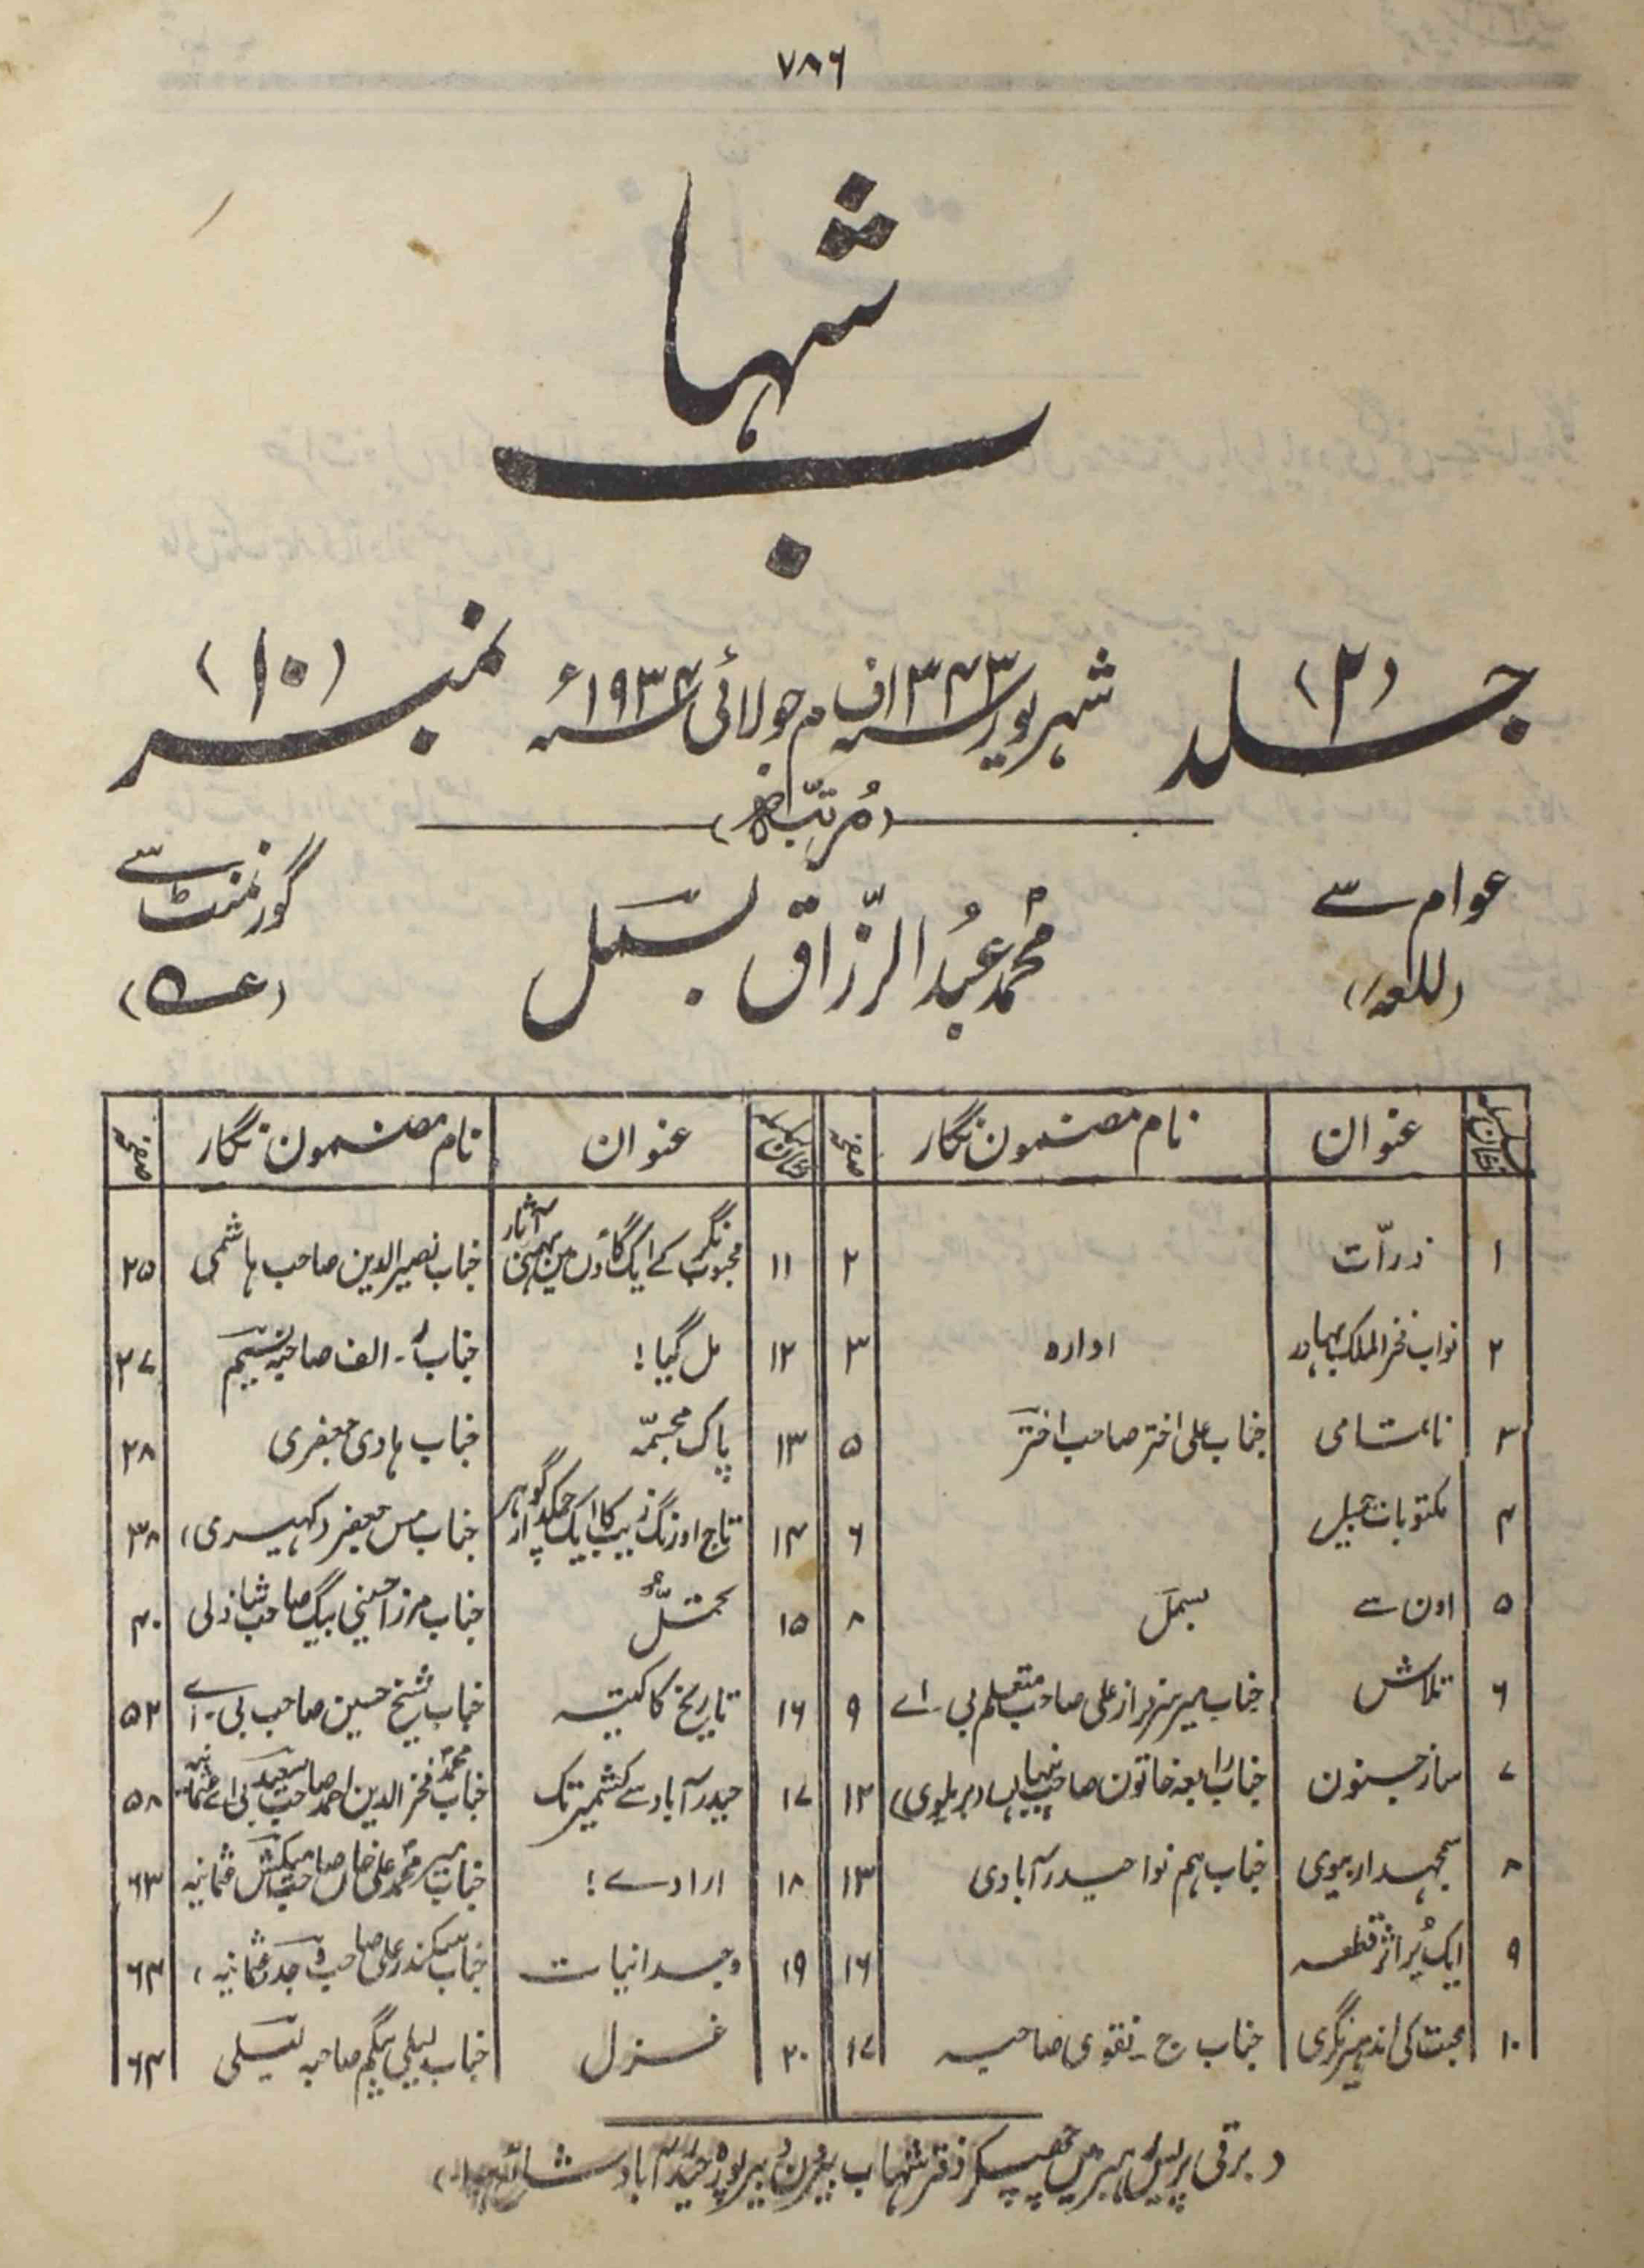 ۷۸۶
شہاب
جلد (۲) شہریور سنہ ۱۳۴۳ف م جولائی سنہ ۱۹۳۴ء نمبر (۱۰)
(مُرتبہ)
عوام سے محمد عبُدالرّزاق بسمل گورنمنٹ سے
نشان سلسلہ عنوان نام مضمون نگار صفحہ نشان سلسلہ عنوان نام مضمون نگار صفحہ
۱ ذرّات ۲
۲ نواب فخرالملک بہادر ادارہ ۳
۳ ناتمامی جناب علی اختر صاحب اختر ۵
۴ مکتوبات جمیل ۶
۵ اون سے بسمل ۸
۶ تلاش جناب میر سرفراز علی صاحب متعلم بی۔ اے ۹
۷ ساز جنون جناب رابعہ خاتون صاحبہ پنہاں (بریلوی) ۱۲
۸ سمجہدار بیوی جناب ہم نوا حیدرآبادی ۱۳
۹ ایک پُر اثر قطعہ ۱۶
۱۰ محبت کی اندہیر نگری جناب ج۔ نقوی صاحبہ ۱۷
۱۱ محبوب نگر کے ایک گاؤں میں بہمنی آثار جناب نصیرالدین صاحب ہاشمی ۲۵
۱۲ مل گیا! جناب ر۔ الف صاحبہ نسیم ۲۷
۱۳ پاک مجسمّہ جناب ہادی جعفری ۲۸
۱۴ تاج اورنگ زیب کا ایک چمکدار گوہر جناب مس جعفر ۳۸
۱۵ جناب مرزا حسینی بیگ صاحب شاذلی ۴۰
۱۶ تاریخ کاکیتہ جناب شیخ حسین صاحب بی۔ اے ۵۲
۱۷ حیدرآباد سے کشمیر تک جناب محمد فخرالدین احمد صاحب سعید بی اے عثمانیہ ۵۸
۱۸ ارادے! جناب میر محمد علی خاں صاحب میکش عثمانیہ ۶۳
۱۹ وجدانیات جناب سکندر علی صاحب وجد عثمانیہ، ۶۴
۲۰ غزل جناب لیلیٰ بیگم صاحبہ لیلی ۶۴
(برقی پریس رہبر میں چھپکر دفتر شہاب بیرون دبیرپورہ حیدرآباد سے شائع ہوا)